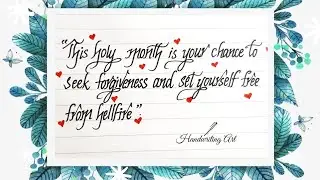 "This holy month is your chance to
seek forgiveness and set yourself free
from hellfire".
Handwriting Art